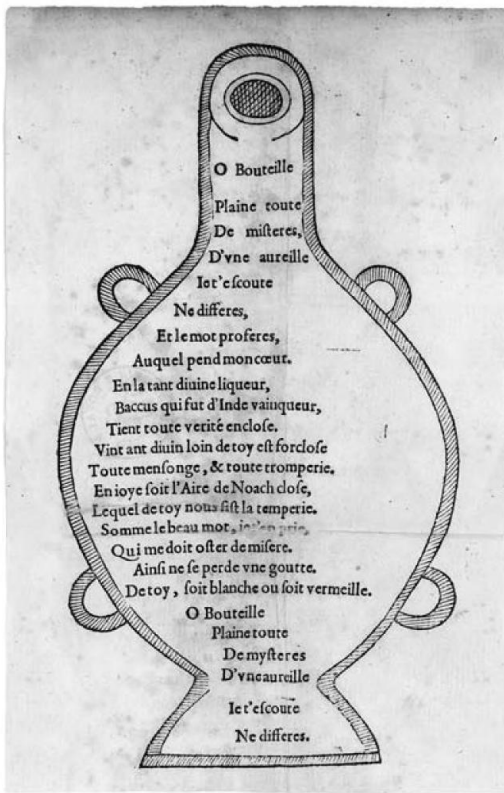 O Bouteille
Plaine toute
De miſteres,
D'vne aureille
Iet'eſcoute
Ne differes,
Et le mot proferes,
Auquel pend mon cœur.
En la tant diuine liqueur,
Baccus qui fut d'Inde vainqueur,
Tient toute verité encloſe.
Vint ant diuin loin de toy eſt forcloſe
Toute menſonge, & toute tromperie.
En ioye ſoit l'Aire de Noach cloſe,
Lequel de toy nous fiſt la temperie.
Somme le beau mot, iet'en prie,
Qui me doit oſter de miſere.
Ainſi ne ſe perde vne goutte.
De toy, ſoit blanche ou ſoit vermeille.
O Bouteille
Plaine toute
De myſteres
D'vne aureille
Ie t'eſcoute
Ne differes.